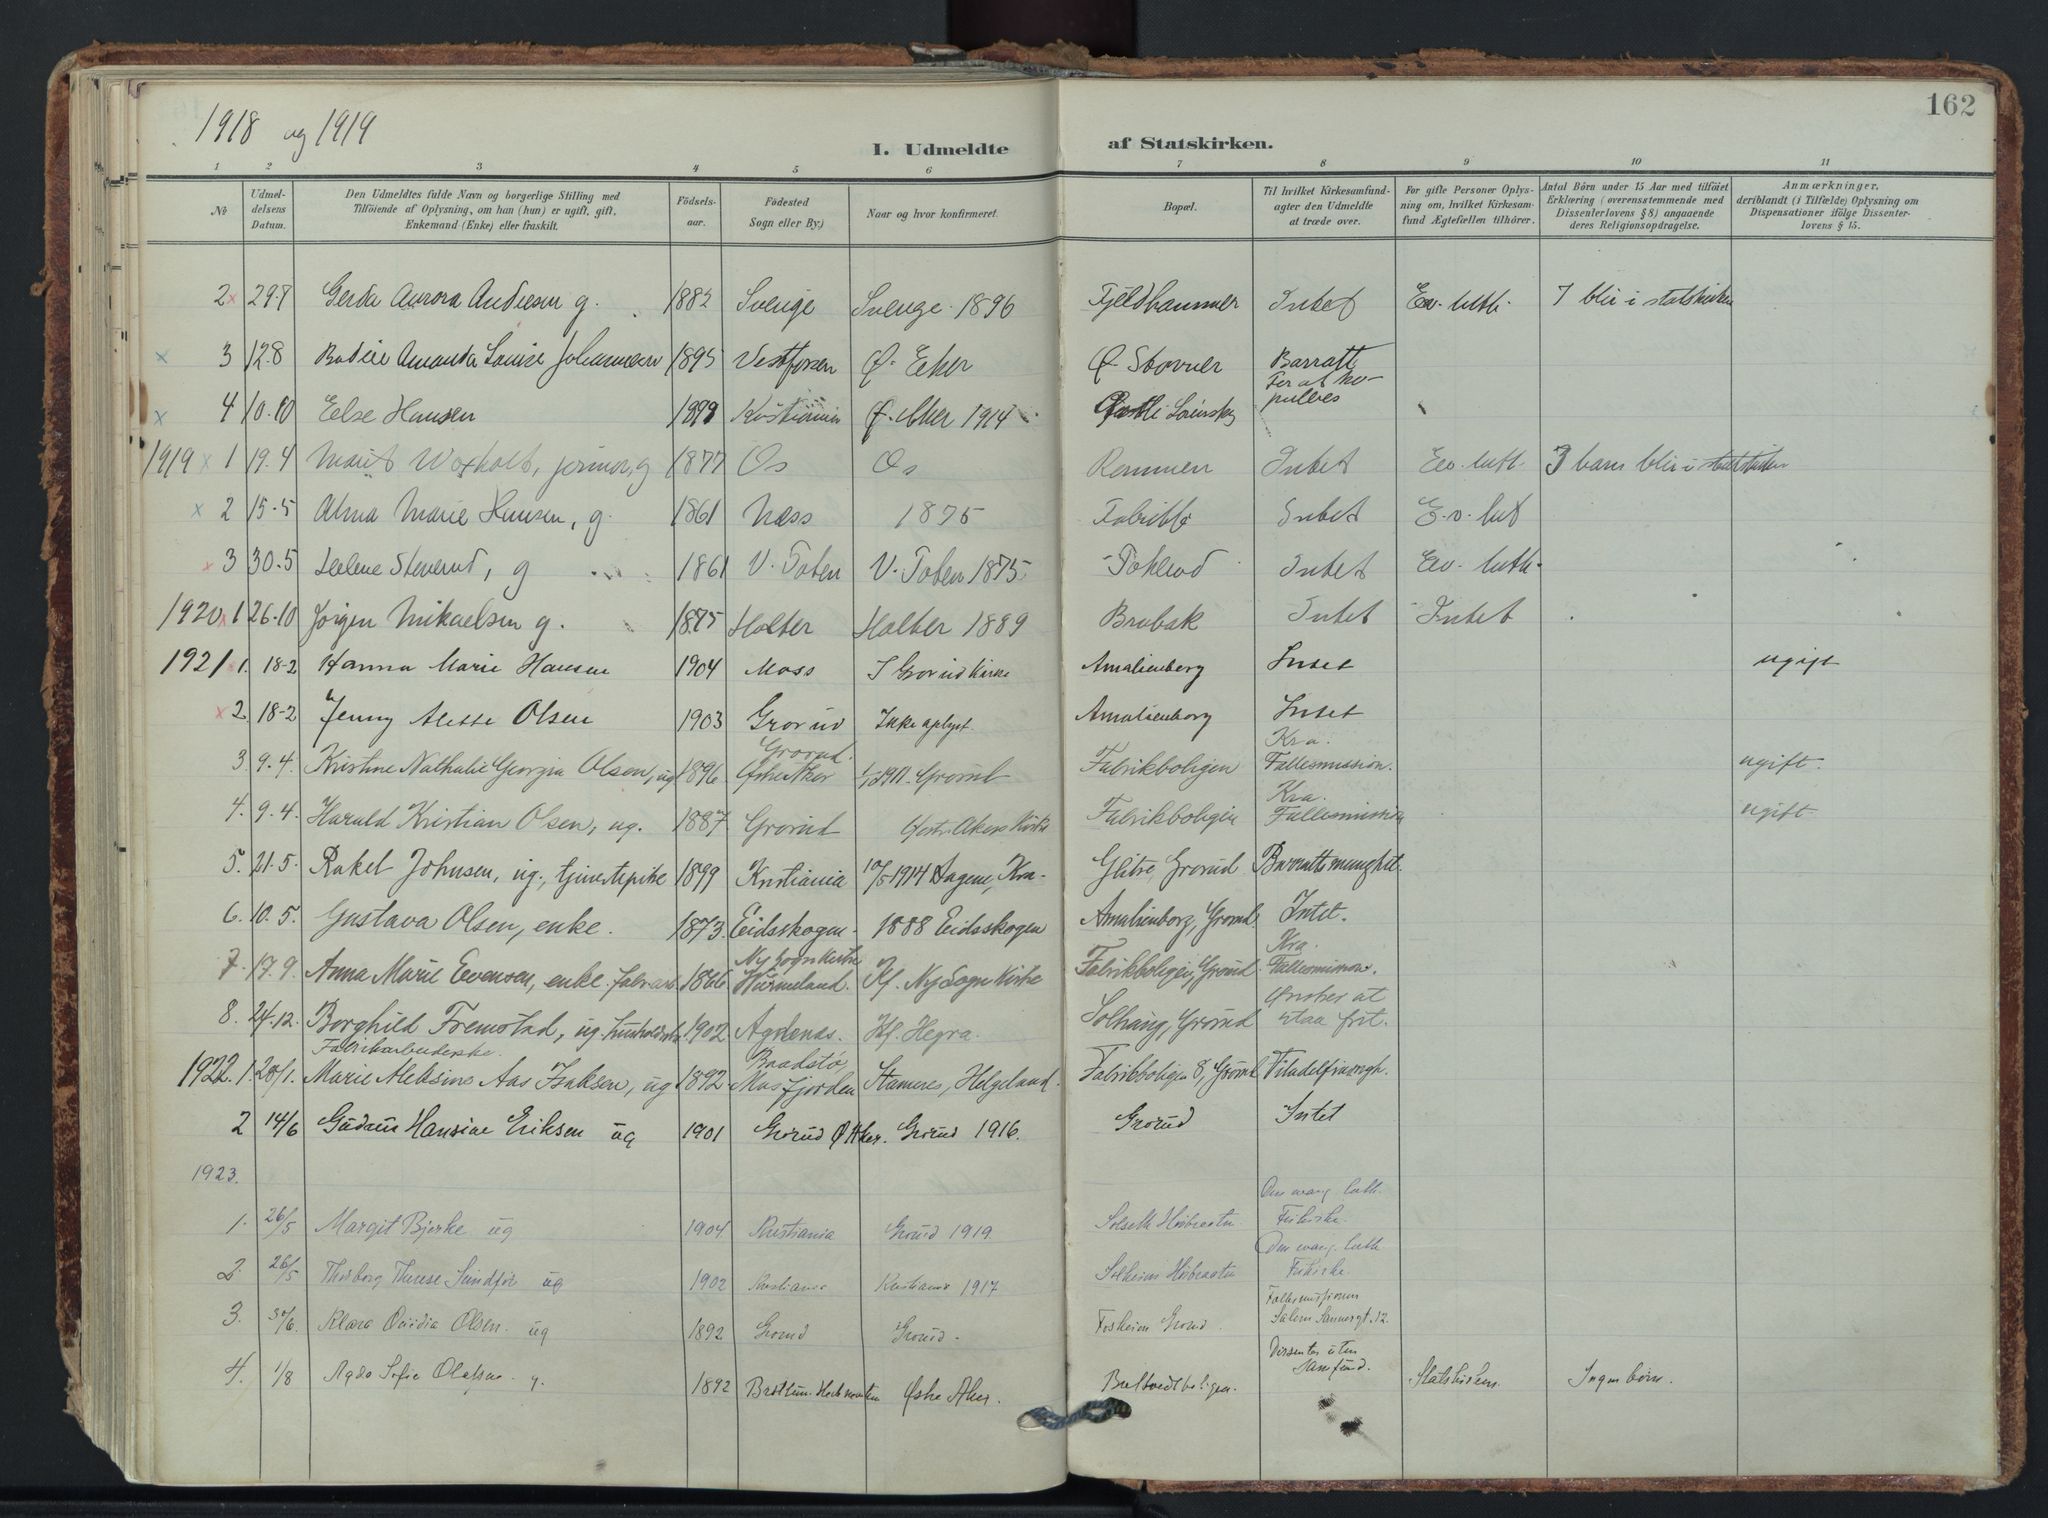 162
1918 og 1919
I. Udmeldte af Statskirken.
1 2 3 4 5 6 7 8 9 10 11
№
Udmeldelsens Datum.
Den Udmeldtes fulde Navn og borgerlige Stilling med Tilföiende af Oplysning, om han (hun) er ugift, gift, Enkemand (Enke) eller fraskilt.
Födselsaar.
Födested Sogn eller By.)
Naar og hvor konfirmeret.
Bopæl.
Til hvilket Kirkesamfund agter den Udmeldte at træde over.
For gifte Personer Oplysning om, hvilket Kirkesamfund Ægtefællen tilhörer.
Antal Börn under 15 Aar med tilföiet Erklæring (overensstemmende med Dissenterlovens § 8) angaaende deres Religionsopdragelse.
Anmærkninger, deriblandt (i Tilfælde) Oplysning om Dispensationer ifölge Dissenterlovens § 15.
2 x 29.7 Gerda Aurora Andresen g. 1882 Sverige Sverige 1896 Fjeldhammer Intet Ev. luth. 7 blir i statskirken
x 3 12.8 Amanda Louise Johannesen 1895 Vestfossen Ø. Eker Ø. Stovner Barratt
x 4 10.10 Else Hansen 1899 Kristiania Ø. Aker 1914
1919 x 1 19.4 Marit Woxholt, g 1877 Os Os Rommen Intet Ev. luth. 3 barn blir i statskirken
x 2 15.5 Alma Marie Hansen, g. 1861 Næs 1875 Intet Ev. lut
x 3 30.5 Helene Stenerud, g 1861 V. Toten V. Toten 1875 Tokerud Intet Ev. luth.
1920 x 1 26.10 Jørgen Mikaelsen g. 1875 Holter Holter 1889 Brobak Intet Intet
1921 1. 18-2 Hanna Marie Hansen 1904 Moss I Grorud Kirke Amalienborg Intet ugift
x 2 18-2 Jenny Alette Olsen 1903 Grorud Ikke oplyst. Amalienborg Intet
3. 9.4. Kristine Nathalie Georgia Olsen, ug 1896 Grorud. Østre Aker 1911. Grorud Fabrikboligen Kra. Fællesmission. ugift.
4. 9.4. Harald Kristian Olsen, ug. 1887 Grorud Østre Akers Kirke Fabrikboligen Kra. Fællesmission ugift.
5. 21.5. Rakel Johnsen, ug., tjenestepike 1899 Kristiania 10/5 1914 Sagene, Kra. Glitre, Grorud Barrattsmenighet.
6. 10.5. Gustava Olsen, enke. 1873. Eidsskogen. 1888 Eidsskogen Amalienborg, Grorud. Intet.
7 17.9. Anna Marie Evensen, enke, fabr.arb. 1866 Ny sogn kirke Värmeland. Kf. Ny Sogn Kirke Fabrikboligen, Grorud Kra. Fællesmission.
8. 24.12. Borghild Fremstad, ug. 1902 Agdenæs. Kf. Hegra. Solhaug, Grorud Ønsker at staa frit.
1922. 1. 20/1. Fabrikarbeiderske. Marie Aleksine Aas Isaksen, ug 1892 Stamnes, Helgeland. Fabrikboligen 8, Grorud Filadelfiamgh.
2 14/6 Gudrun Hansine Eriksen ug 1901 Grorud Ø Aker. Grorud 1916. Grorud Intet
1923.
1. 26/5 Margit Bjerke ug 1904 Kristiania Grorud 1919. Den evang. luth. Frikirke.
2. 26/5 Thorborg Therese Sundfør ug 1902 Kristiania Kristiania 1917 Solheim Høibraaten Den evang. luth. Frikirke.
3. 30/6. Klara Ovidia Olsen. ug 1892 Grorud Grorud. Fosheim Grorud. Fællesmissionen Salem Sannergt. 12
4. 1/8 Agda Sofie Olafsen. g. 1892 Østre Aker. Bredtvedtboligen. Dissenter uten samfund. Statskirken. Ingen børn.